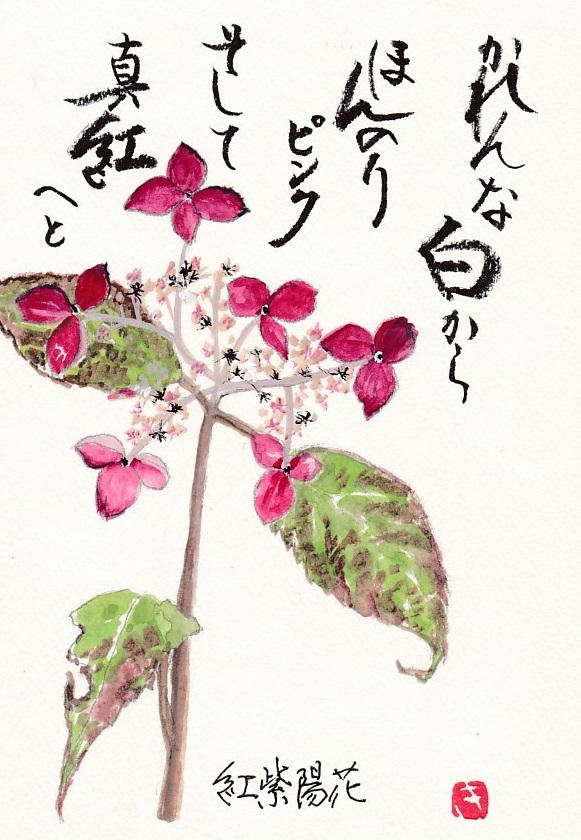 かれんな白から
ほんのり
ピンク
そして
真紅
へと
紅紫陽花
き